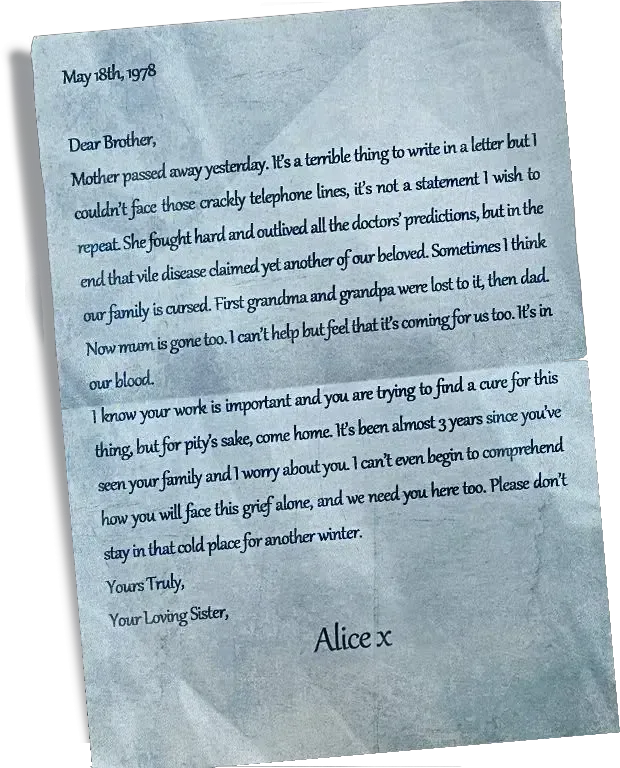 May 18th, 1978
Dear Brother,
Mother passed away yesterday. It's a terrible thing to write in a letter but I
couldn't face those crackly telephone lines, it's not a statement I wish to
repeat. She fought hard and outlived all the doctors' predictions, but in the
end that vile disease claimed yet another of our beloved. Sometimes I think
our family is cursed. First grandma and grandpa were lost to it, then dad.
Now mum is gone too. I can't help but feel that it's coming for us too. It's in
our blood.
I know your work is important and you are trying to find a cure for this
thing, but for pity's sake, come home. It's been almost 3 years since you've
seen your family and I worry about you. I can't even begin to comprehend
how you will face this grief alone, and we need you here too. Please don't
stay in that cold place for another winter.
Yours Truly,
Your Loving Sister,
Alice x